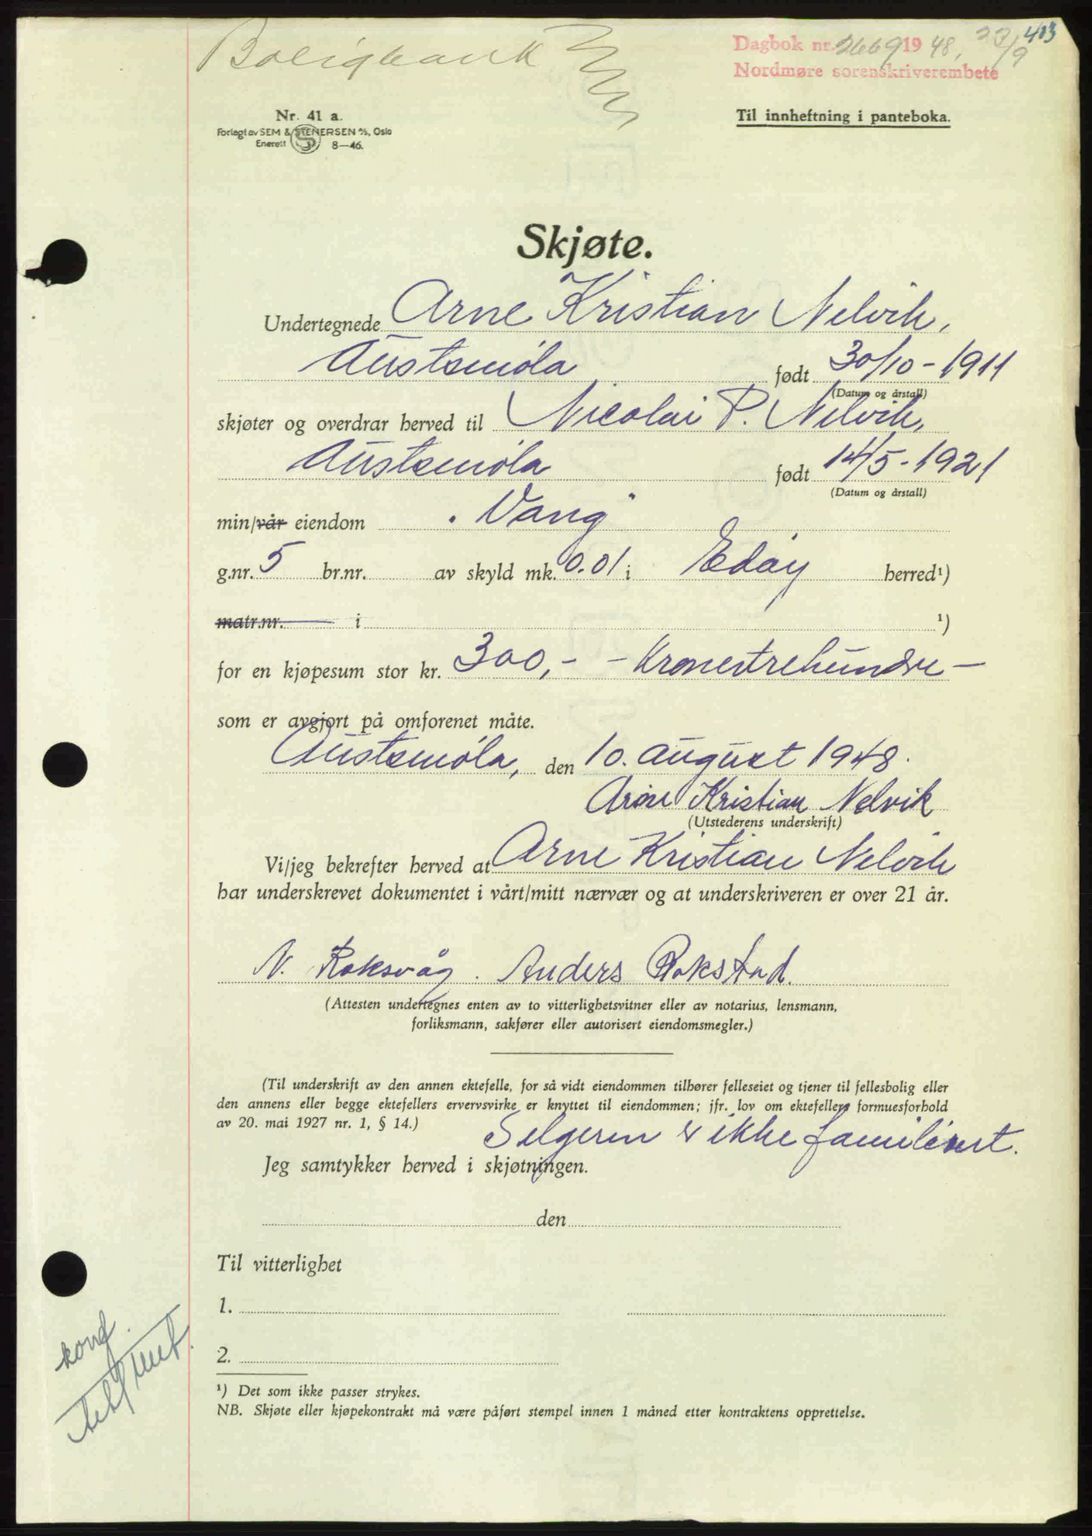 Boligbank
Dagbok nr. 2669 1948, 23/9 413
Nordmøre sorenskriverembete
Nr. 41 a.
Forlagt av SEM & STENERSEN A/S, Oslo
Enerett S 8—46.
Til innheftning i panteboka.
Skjøte.
Undertegnede Arne Kristian Nelvik,
Austsmøla født 30/10-1911
(Datum og årstall)
skjøter og overdrar herved til Nicolai P. Nelvik,
Austsmøla født 14/5-1921
(Datum og årstall)
min/vår eiendom "Vang"
g.nr. 5 br.nr. av skyld mk. 0.01 i Edøy herred¹)
matr.nr. i ¹)
for en kjøpesum stor kr. 300,- - Kronertrehundre -
som er avgjort på omforenet måte.
Austsmøla, den 10. august 1948.
Arne Kristian Nelvik
(Utstederens underskrift)
Vi/jeg bekrefter herved at Arne Kristian Nelvik
har underskrevet dokumentet i vårt/mitt nærvær og at underskriveren er over 21 år.
N. Roksvåg. Anders Rokstad.
(Attesten undertegnes enten av to vitterlighetsvitner eller av notarius, lensmann,
forliksmann, sakfører eller autorisert eiendomsmegler.)
(Til underskrift av den annen ektefelle, for så vidt eiendommen tilhører felleseiet og tjener til fellesbolig eller
den annens eller begge ektefellers ervervsvirke er knyttet til eiendommen; jfr. lov om ektefellers formuesforhold
av 20. mai 1927 nr. 1, § 14.)
Selgeren er ikke familiert.
Jeg samtykker herved i skjøtningen.
den
Til vitterlighet
1.
2.
konf.
¹) Det som ikke passer strykes.
NB. Skjøte eller kjøpekontrakt må være påført stempel innen 1 måned etter kontraktens opprettelse.